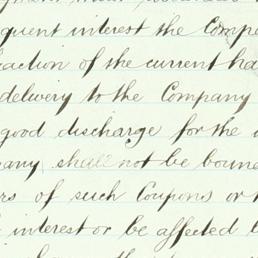 quent interest the Compe
action of the current ha
delivery to the Company
good discharge for the
pany shall not be boun
rs of such Coupons or
interest or be affected